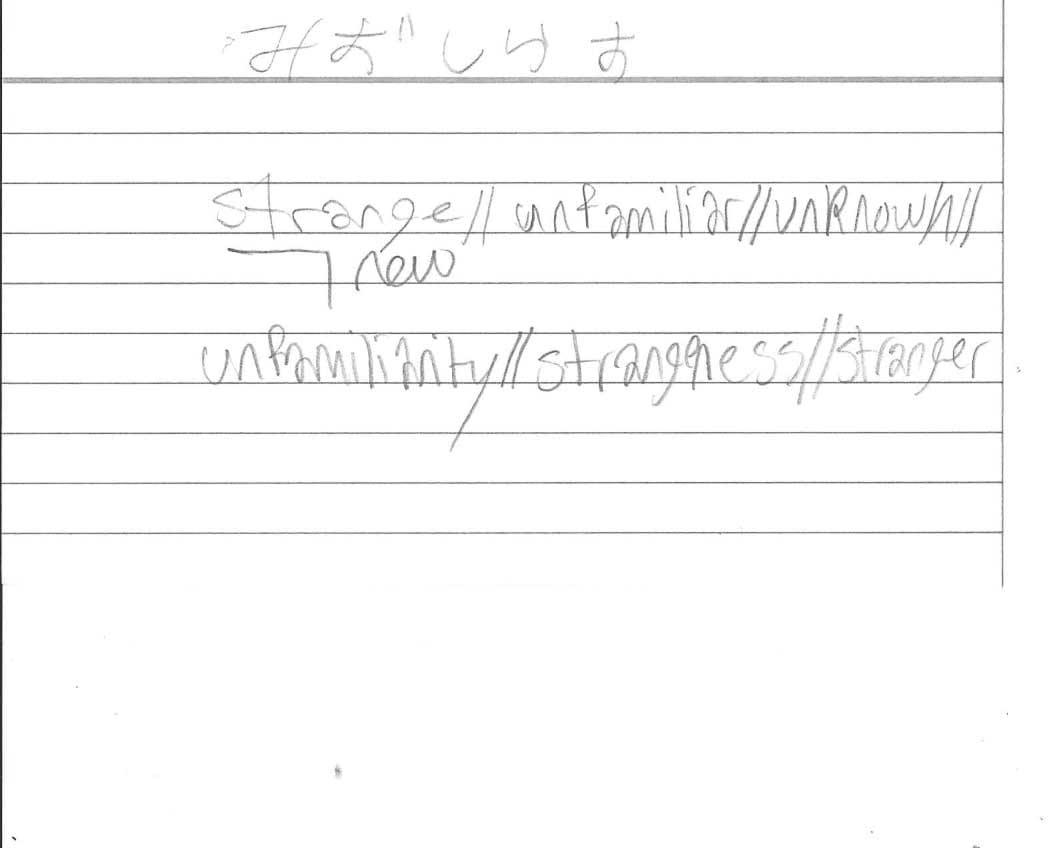 みずしらず
strange// unfamiliar//unknown//
new
unfamilianity//strangeness//stranger